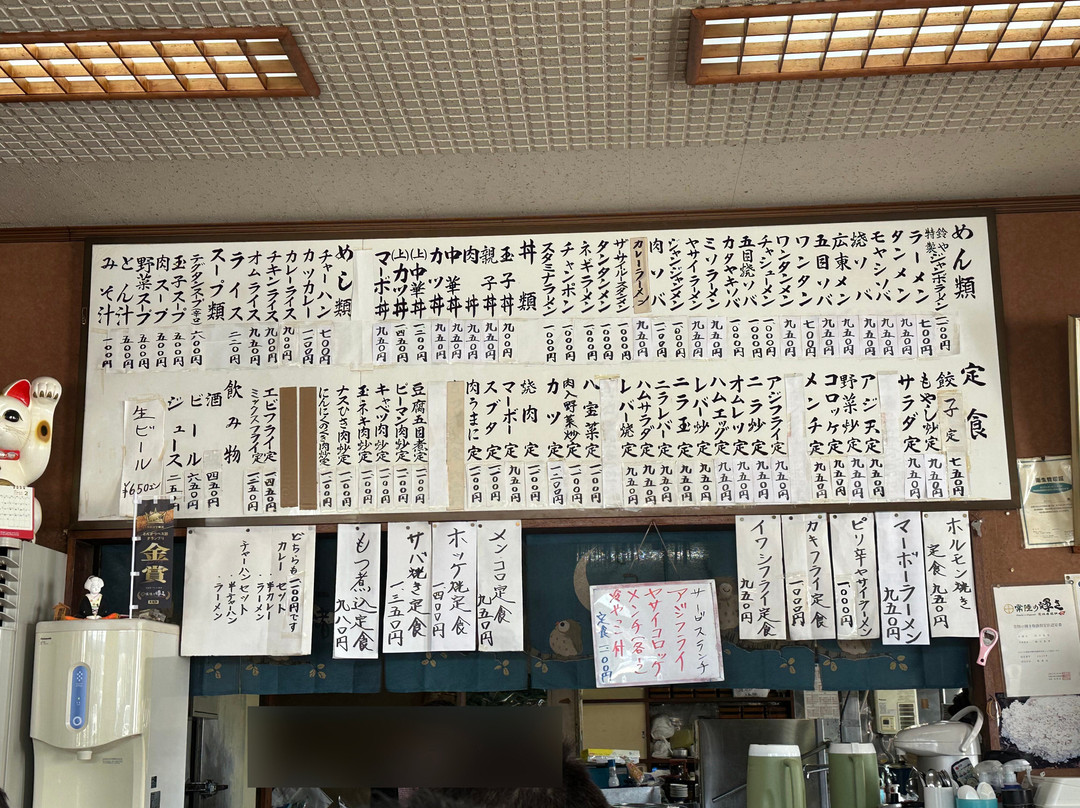 めん類
鈴木特製
ジャンボラーメン 一二〇〇円
ラーメン 七〇〇円
タンメン 九五〇円
モヤシソバ 九五〇円
焼ソバ
広東メン 九五〇円
五目ソバ 九五〇円
ワンタン 七〇〇円
ワンタンメン 九五〇円
チャシューメン
五目焼ソバ 一〇〇〇円
カタヤキソバ 一〇〇〇円
ミソラーメン 九五〇円
ヤサイラーメン 九五〇円
ジャンジャンメン 一〇〇〇円
肉ソバ 九五〇円
カレーラーメン
ネギラーメン 一〇〇〇円
チャンポン 一〇〇〇円
スタミナラメン 一〇〇〇円
丼類
玉子丼 九〇〇円
親子丼 九五〇円
肉丼 九五〇円
中華丼 九五〇円
カツ丼
(上)中華丼
(上)カツ丼
マーボ丼 九五〇円
めし類
チャーハン 七〇〇円
カツカレー 一一〇〇円
カレーライス 九〇〇円
チキンライス 九五〇円
オムライス 九五〇円
ライス
スープ類
玉子スープ 五五〇円
肉スープ 五五〇円
野菜スープ 五五〇円
とん汁 五〇〇円
みそ汁 一〇〇円
定食
餃子定 七五〇円
もやし炒定 九五〇円
サラダ定 九五〇円
アジ天定 九五〇円
野菜炒定 九五〇円
コロッケ定 九五〇円
メンチ定 九五〇円
アジフライ定 九五〇円
ニラ炒定 九五〇円
オムレツ定 九五〇円
ハムエッグ定 九五〇円
ニラ玉定 九五〇円
ニラレバー定 九五〇円
ハムサラダ定 九五〇円
レバー焼定 九五〇円
八宝菜定 一一〇〇円
肉入野菜炒定 一一〇〇円
カツ定
焼肉定
マーボー定 九五〇円
スブタ定
肉うまに定 一一〇〇円
豆腐五目煮定
ピーマン肉炒定 一一〇〇円
キャベツ肉炒定 一一〇〇円
玉ネギ肉炒定 一一〇〇円
ナスひき肉炒定 一一〇〇円
にんにくのめき肉炒定 一一〇〇円
エビフライ定 一四五〇円
ミックスフライ定 一二五〇円
飲み物
酒 四五〇円
ビール 六五〇円
ジュース
生ビール
¥650エン
ホルモン焼き
定食 九五〇円
マーボーラーメン
九五〇円
ピリ辛ヤサイラーメン
一〇〇〇円
カキフライ定食
一一〇〇円
イワシフライ定食
九五〇円
サービスランチ
アジフライ
ヤサイコロッケ
メンチ
冷やっこ付
定食
メンコロ定食
九五〇円
ホッケ焼定食
一四〇〇円
サバ焼き定食
一三五〇円
もつ煮込定食
九八〇円
どちらも一一〇〇円です
カレーセット
・半カレー
・ラーメン
チャーハンセット
・半チャーハン
・ラーメン
金賞